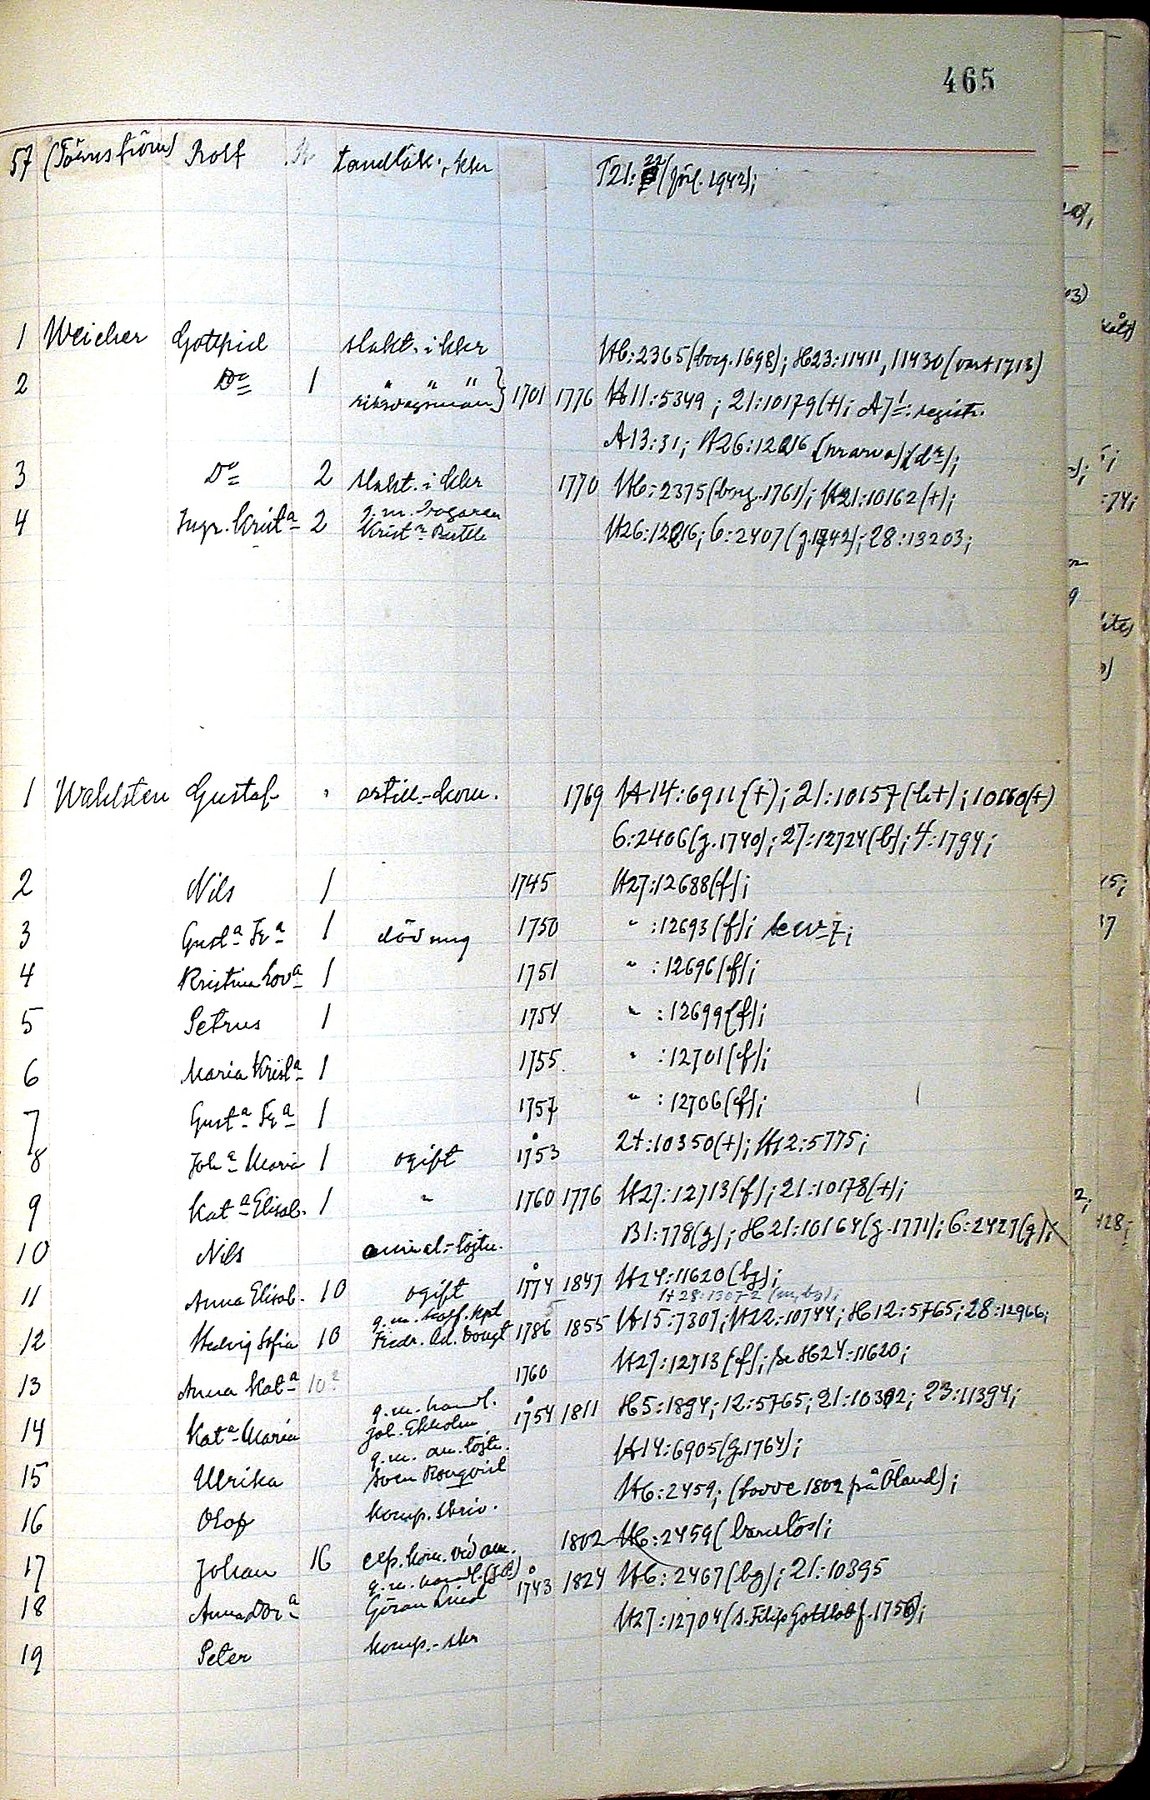 465
57 (Törnström) Rolf tandläk. i kkr T21: 22 (förl. 1942);
1 Weicher Gottfrid slakt. i kkr H6:2365 (borg. 1698); H23:11411, 11430 (var + 1713)
2 Do 1 " " " riksdagsman} 1701 1776 H11:5349; 21:10179(+); A7 1: registr.
A13:31; H26:12216 (do);
3 Do 2 slakt. i kkr 1770 H6:2375 (borg. 1761); H21:10162(+);
4 Ingr. Krista 2 g.m. Krist. H26:12216; 6:2407 (g. 1742); 28:13203;
1 Wahlsten Gustaf artill.-kom. 1769 H14:6911(+); 21:10157(h+); 10160(+)
6:2406(g. 1740); 27:12724(b); 4:1794;
2 Nils 1 1745 H27:12688(f);
3 Gusta Fra 1 död ung 1750 " :12693(f); se nr 7;
4 Kristina Lova 1 1751 " :12696(f);
5 Petrus 1 1754 " :12699(f);
6 Maria Krista 1 1755 " :12701(f);
7 Gusta Fra 1 1757 " :12706(f);
8 Joha Maria 1 ogift 1753 21:10350(+); H12:5775;
9 Kata Elisab. 1 " 1760 1776 H27:12713(f); 21:10178(+);
10 Nils amiral.-löjtn. B1:778(g); H21:10164(g. 1771); 6:2427(g);
11 Anna Elisab. 10 ogift 1774 1847 H24:11620(bg);
12 Hedvig Sofia 10 g.m. koff. kpt Fredr. Ad. Vougt 1786 1855 H15:7307; H22:10744; H12:5765; 28:12966;
13 Anna Kata 10? 1760 H27:12713(f); se H24:11620;
14 Kata Maria g.m. handl. Joh. Ekholm 1754 1811 H5:1894; 12:5765; 21:10392; 23:11394;
15 Ulrika g.m. am. löjtn. Sven Ronqvist H14:6905(g. 1764);
16 Olof komp. skriv. H6:2459; (bodde 1802 på Öland);
17 Johan 16 exp. kom. vid am. 1802 H6:2459 (barnlös);
18 Anna Dora g.m. handl. Göran Lind 1743 1824 H6:2467(bg); 21:10395
19 Peter komp.-skr H27:12704 (s. Filip Gottlob f. 1756);